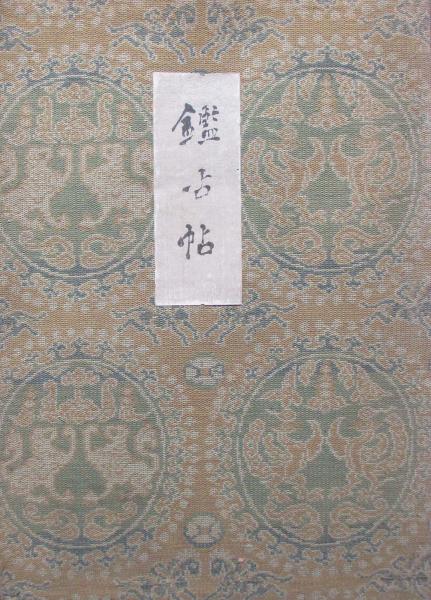 鑑古帖